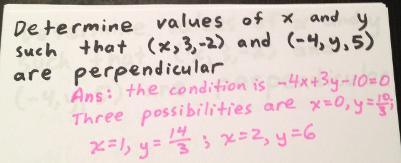 Determine values of x and y
such that (x,3,-2) and (-4,y,5)
are perpendicular
Ans: the condition is -4x+3y-10=0
Three possibilities are x=0, y=10/3;
x=1, y=14/3 ; x=2, y=6